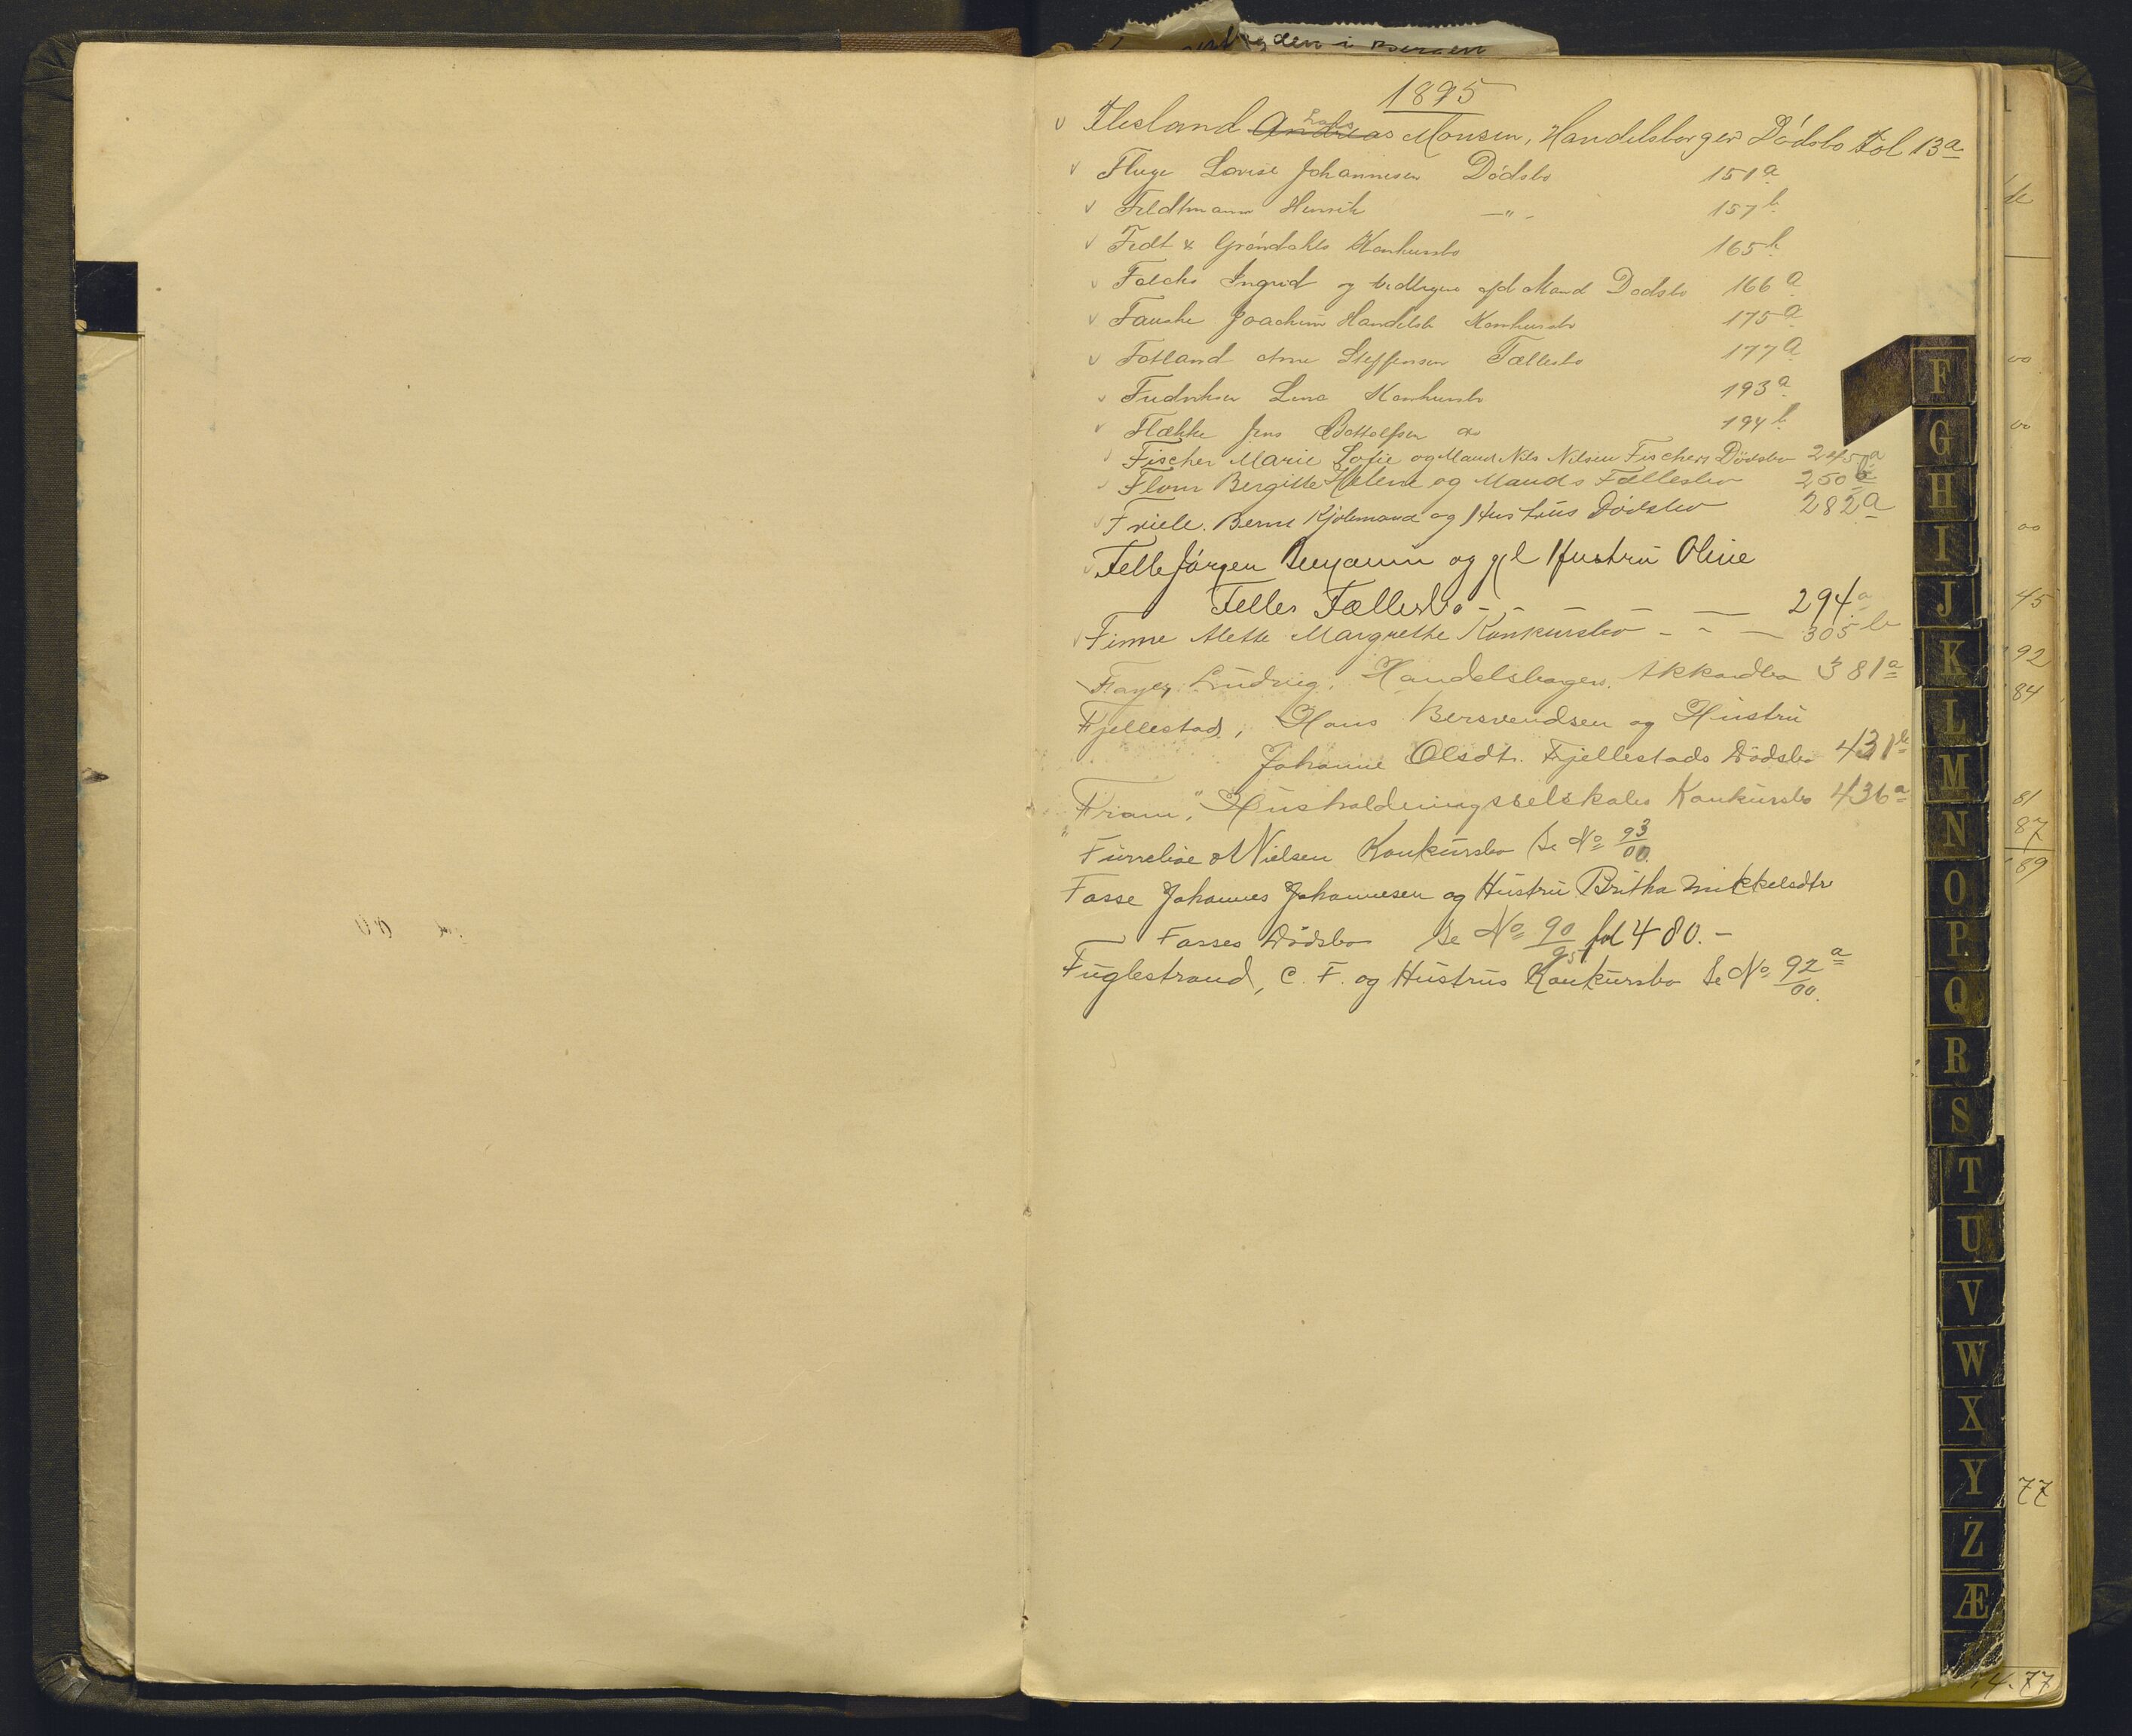 1895
Flesland Andreas Lars Monsen, Handelsborger Dödsbo Fol 13a
Fluge Lovise Johannesen Dödsbo 151a
Feldtmann Henrik —"— 157b
Fedt & Gröndahls Konkursbo 165b
Falcks Ingrid og tidligere afd Mand Dødsbo 166a
Fauske Joachim Handelsb Konkursbo 175a
Fotland Arne Steffensen Fællesbo 177a
Fredriksen Lena Konkursbo 193a
Flække Jens Bottolfsen do 194b
Fischer Marie Sofie og Mand Nils Nilsen Fischers Dödsbo 245a
Flom Bergitte Helene og Mands Fællesbo 250a
Friele. Bernt Kjöbmand og Hustrus Dödsbo 282a
Felle Jörgen Benjamin og gjl Hustru Oline
Felles Fællesbo - - - - - 294a
Finne Mette Margrethe Konkursbo - - - 305b
Fayer Ludvig, Handelsborgers. Akkordbo 381a
Fjellestad, Hans Bersvendsen og Hustru
Johanne Olsdtr. Fjellestads Dödsbo 431b
"Fram", Husholdningsselskabs Konkursbo 436a
Furreböe & Nielsen Konkursbo Se No 93/00
Fosse Johannes Johannesen og Hustru Britha Mikkelsdtr
Fosses Dödsbo Se No 90/95 fol 480.-
Fuglestrand, C. F. og Hustrus Konkursbo Se No 92/00 a
F
G
H
I
J
K
L
M
N
O
P
Q
R
S
T
U
V
W
X
Y
Z
Æ
00
00
00
45
92
84
81
87
89
77
4.77